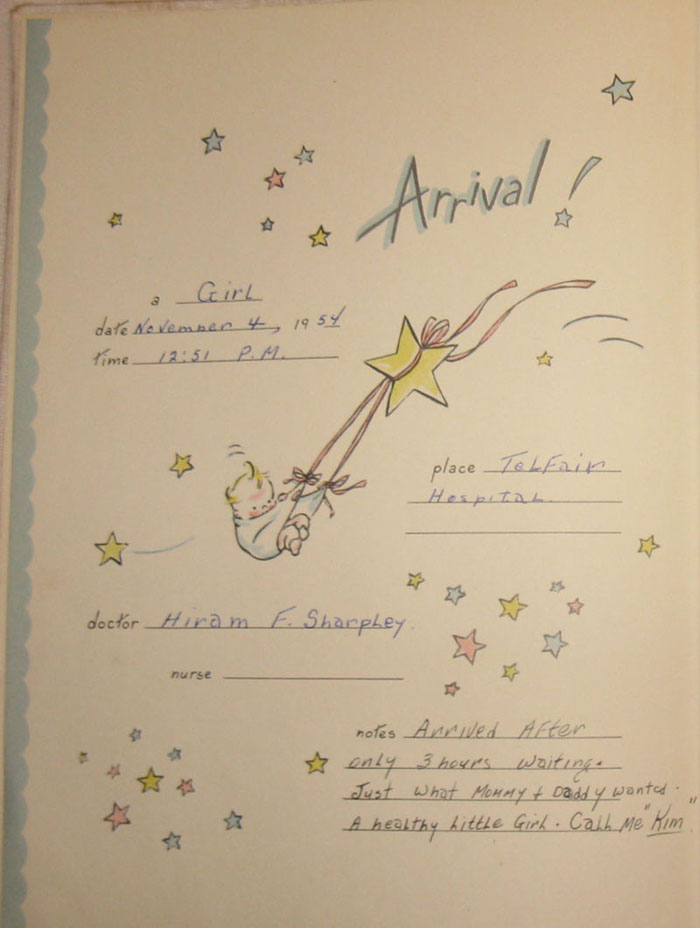 Arrival!
a Girl
date November 4, 1954
time 12:51 P.M.
place Telfair
Hospital.
doctor Hiram F. Sharpley.
nurse
notes Arrived After
only 3 hours waiting.
Just what Mommy + Daddy wanted.
A healthy Little Girl. Call Me "Kim"